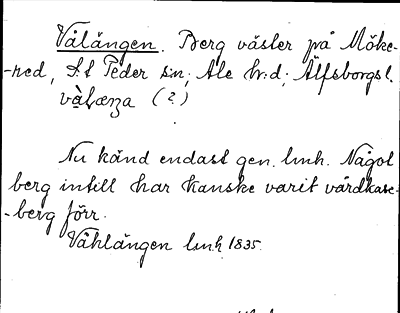 Vålången. Berg väster på Möke-
-hed, S:t Peder sn; Ale hd; Älfsborgs l.
(?)
Nu känd endast gen. lmh. Något
berg intill har kanske varit vårdkase-
-berg förr.
Våhlången lmh 1835.